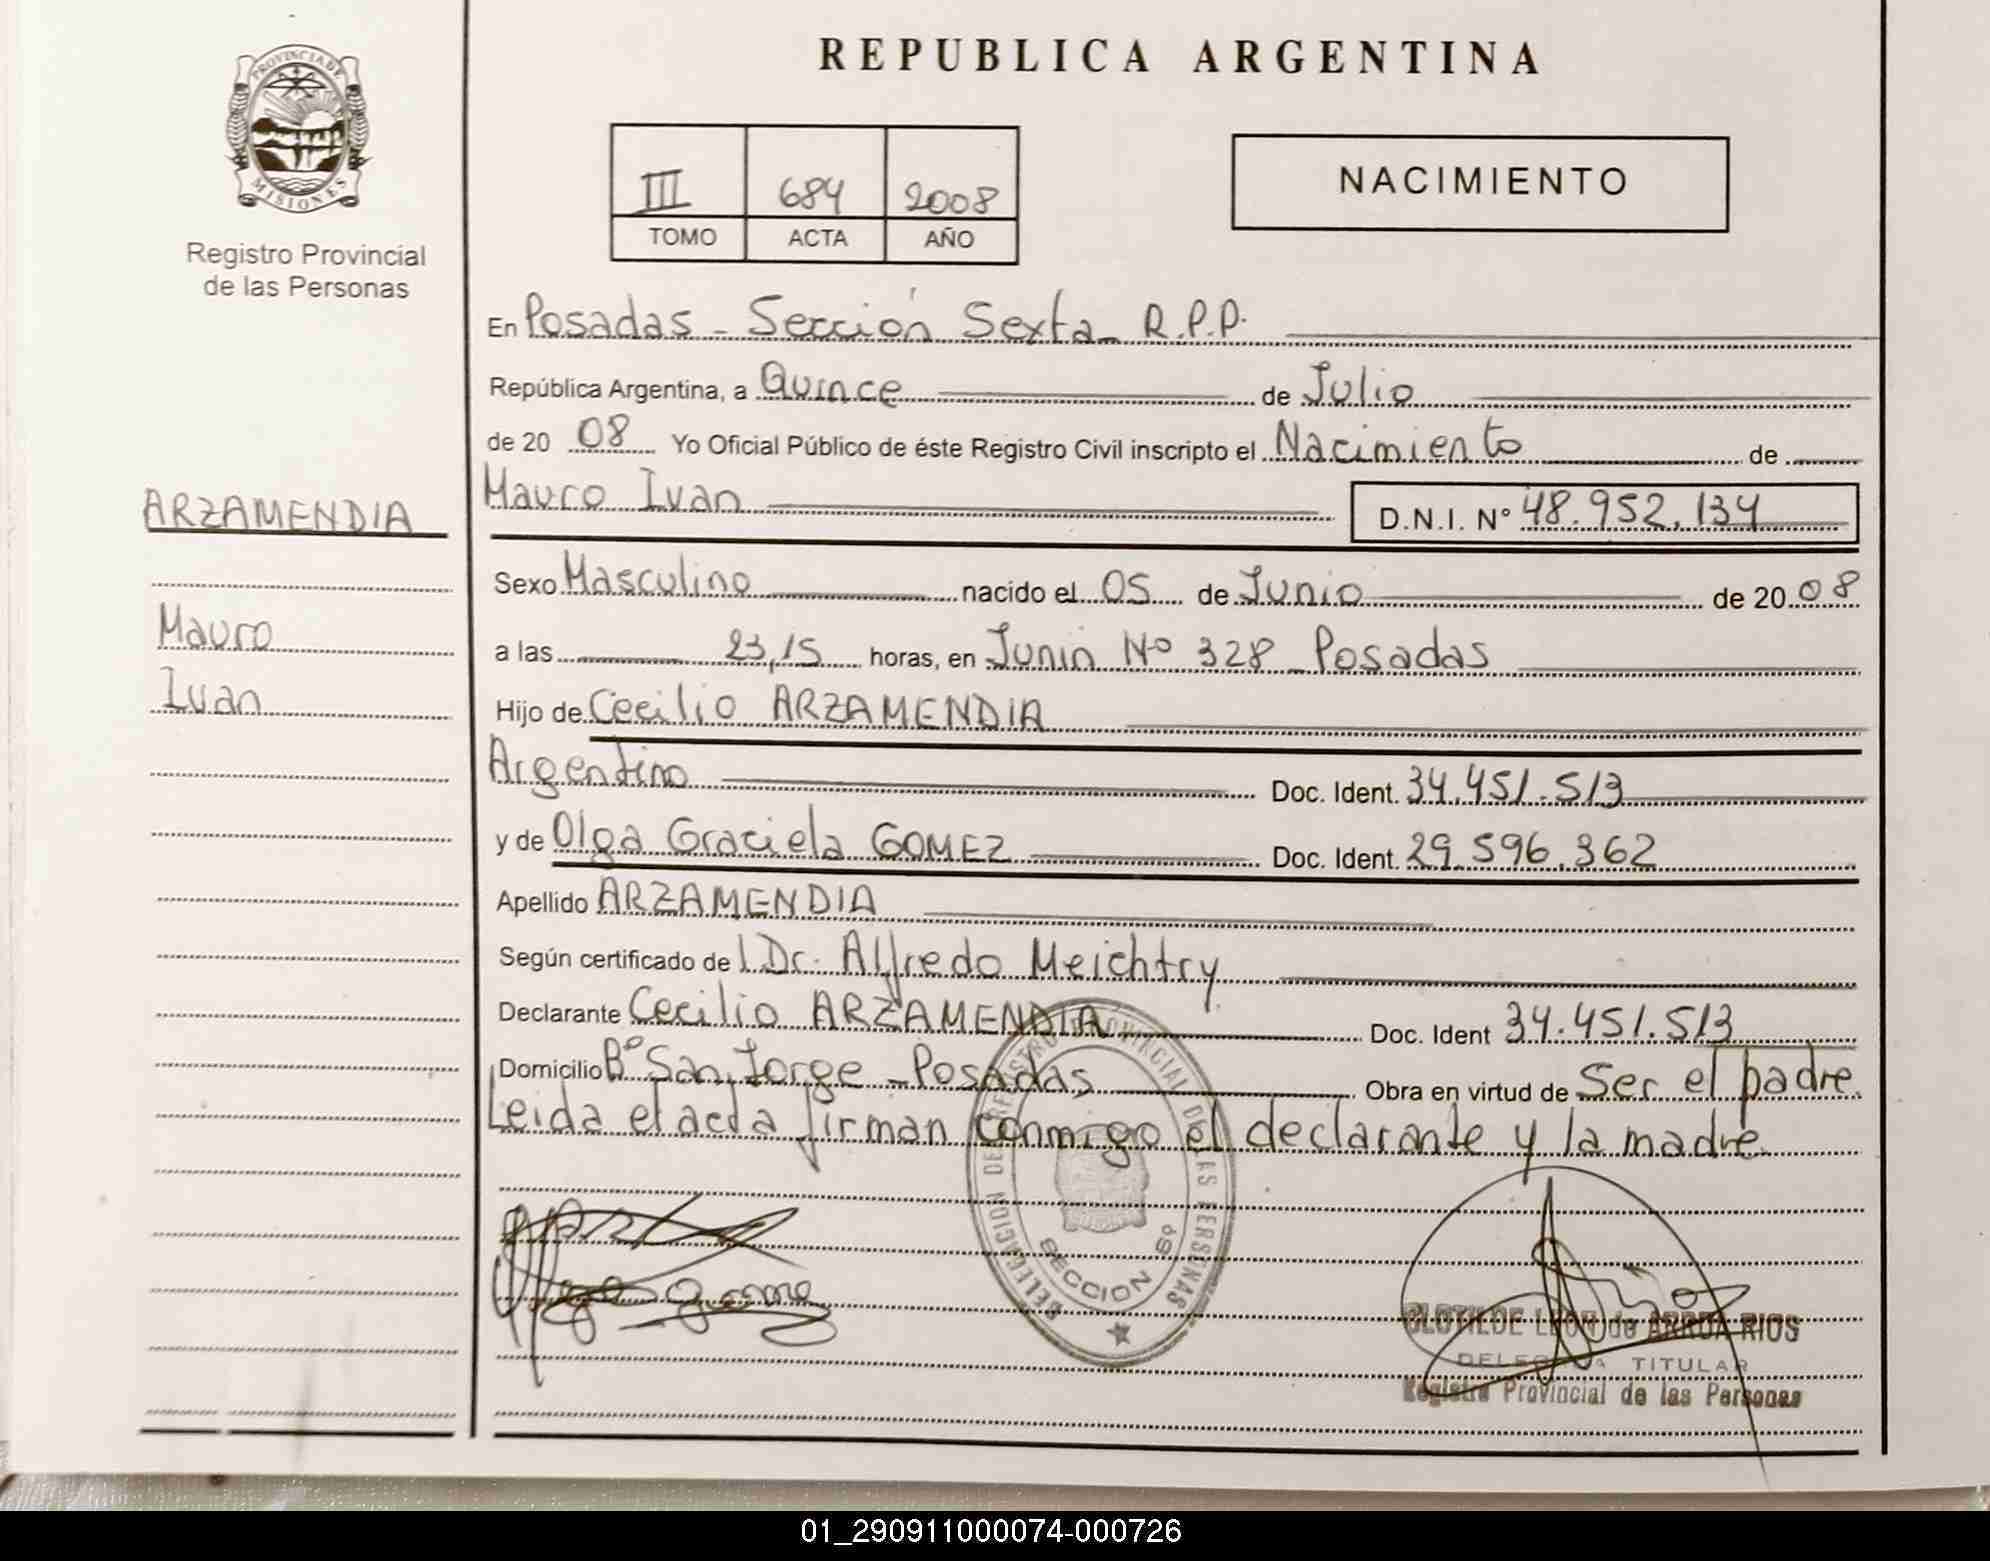 REPUBLICA ARGENTINA
PROVINCIA DE
MISIONES
Registro Provincial
de las Personas
III 684 2008
TOMO ACTA AÑO
NACIMIENTO
En Posadas - Sección Sexta R.P.P.
República Argentina, a Quince de Julio
de 20 08 Yo Oficial Público de éste Registro Civil inscripto el Nacimiento de
Mauro Ivan D.N.I. N° 48.952.134
ARZAMENDIA
Mauro
Ivan
Sexo Masculino nacido el 05 de Junio de 20 08
a las 23,15 horas, en Junin Nº 328 Posadas
Hijo de Cecilio ARZAMENDIA
Argentino Doc. Ident. 34.451.513
y de Olga Graciela GOMEZ Doc. Ident. 29.596.362
Apellido ARZAMENDIA
Según certificado de l Dr. Alfredo Meichtry
Declarante Cecilio ARZAMENDIA Doc. Ident 34.451.513
Domicilio Bº San Jorge - Posadas Obra en virtud de Ser el padre.
Leida el acta firman conmigo el declarante y la madre.
DELEGACION DEL REGISTRO PROVINCIAL DE LAS PERSONAS
SECCION 6º
CLOTILDE LEON de ARRUA RIOS
DELEGADA TITULAR
Registro Provincial de las Personas
01_290911000074-000726